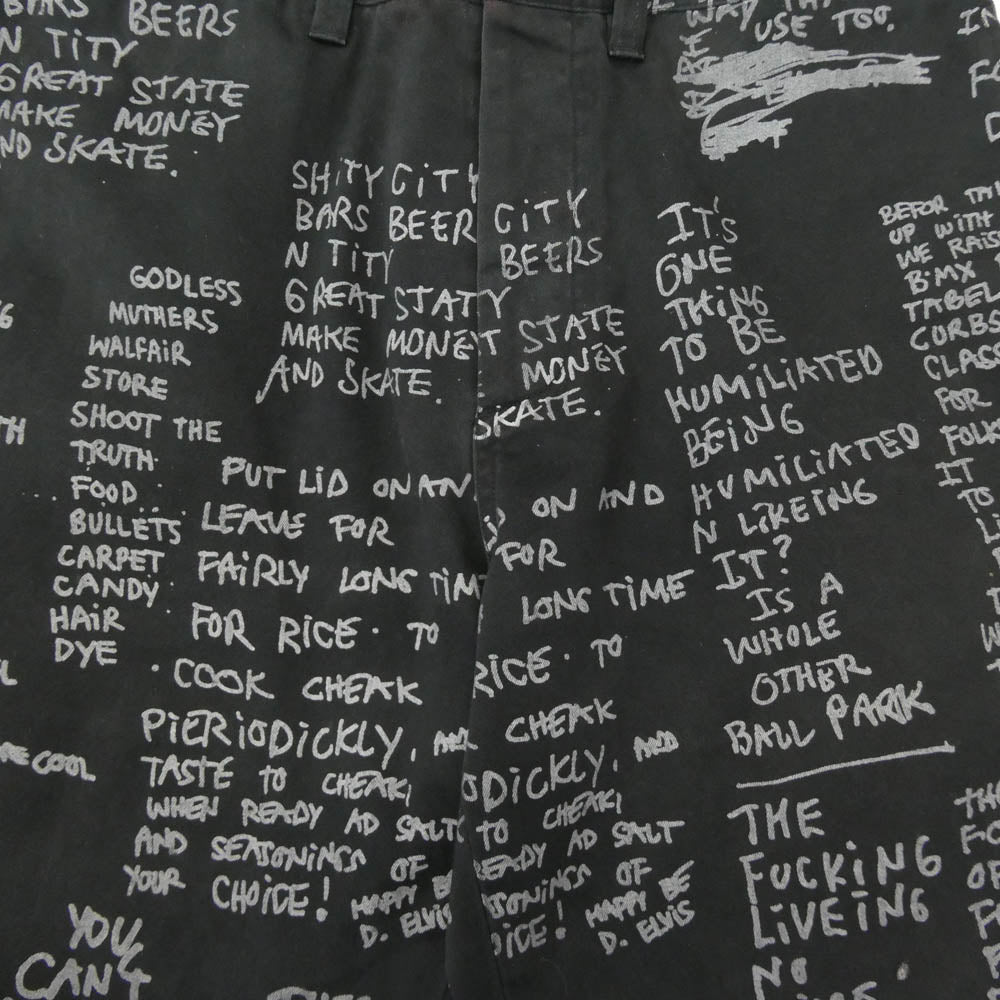 BARS BEERS
N TiTY
GREAT STATE
MAKE MONEY
AND SKATE.
WAY
USE TOO.
SHiTY CiTY
BARS BEER
N TiTY
GREAT STATY
MAKE MONEY
AND SKATE.
CiTY
BEERS
STATE
MONEY
SKATE.
GODLESS
MUTHERS
WALFAiR
STORE
SHOOT THE
TRUTH.
FOOD.
BULLETS
CARPET
CANDY.
HAiR
DYE
PUT LiD ON AN
LEAVE FOR
FAiRLY LONG TiM
FOR RICE. TO
COOK CHEAK
PiERiODiCKLY, AND
TASTE TO CHEAK,
WHEN READY AD SALT
AND SEASONiNGS OF
YOUR CHOiCE!
HAPPY BE
D. ELViS
ON AND
FOR
LONG TiME
RiCE. TO
CHEAK
ODiCKLY, AND
TO CHEAK,
READY AD SALT
SONiNGS OF
OiCE! HAPPY BE
D. ELVIS
IT'S
ONE
THiNG
TO BE
HUMiLiATED
BEiNG
HUMiLiATED
N LiKEiNG
IT?
IS A
WHOLE
OTHER
BALL PARK
THE
FUCKiNG
LiVEiNG
NO
BEFOR
UP WiTH
WE RAiS
BiMX
TABEL
CORBS
CLASS
FOR
FOLK
IT
TO
YOU
CAN'T